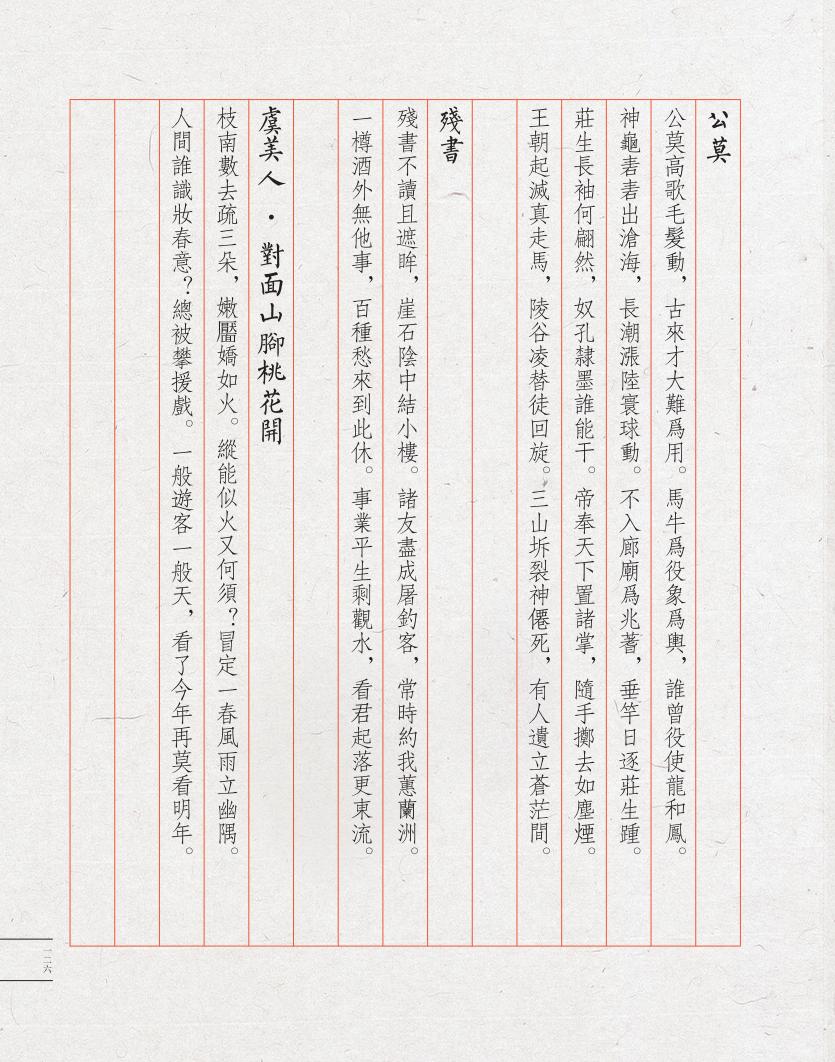 公莫
公莫高歌毛髮動，古來才大難爲用。馬牛爲役象爲輿，誰曾役使龍和鳳。
神龜砉砉出滄海，長潮漲陸寰球動。不入廊廟爲兆蓍，垂竿日逐莊生踵。
莊生長袖何翩然，奴孔隸墨誰能干。帝奉天下置諸掌，隨手擲去如塵煙。
王朝起滅真走馬，陵谷凌替徒回旋。三山坼裂神僊死，有人遺立蒼茫間。
殘書
殘書不讀且遮眸，崖石陰中結小樓。諸友盡成屠釣客，常時約我蕙蘭洲。
一樽酒外無他事，百種愁來到此休。事業平生剩觀水，看君起落更東流。
虞美人·對面山腳桃花開
枝南數去疏三朵，嫩靨嬌如火。縱能似火又何須？冒定一春風雨立幽隅。
人間誰識妝春意？總被攀援戲。一般遊客一般天，看了今年再莫看明年。
一二六